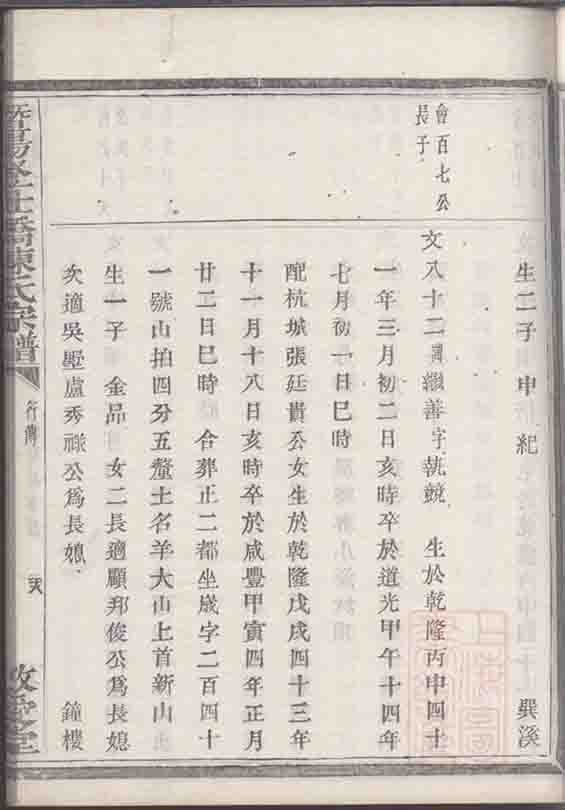 生二子 申 紀 巽溪
會百七公
長子
文八十二諱繼善字執競 生於乾隆丙申四十
一年三月初二日亥時卒於道光甲午十四年
七月初一日巳時
配杭城張廷貴公女生於乾隆戊戌四十三年
十一月十八日亥時卒於咸豐甲寅四年正月
廿二日巳時 合葬正二都坐歲字二百四十
一號山拍四分五釐土名羊大山上首新山
生一子 金品 女二長適顧邦俊公爲長媳
次適吳墅盧秀祿公爲長媳 鐘樓
橋陳氏宗譜
行傳